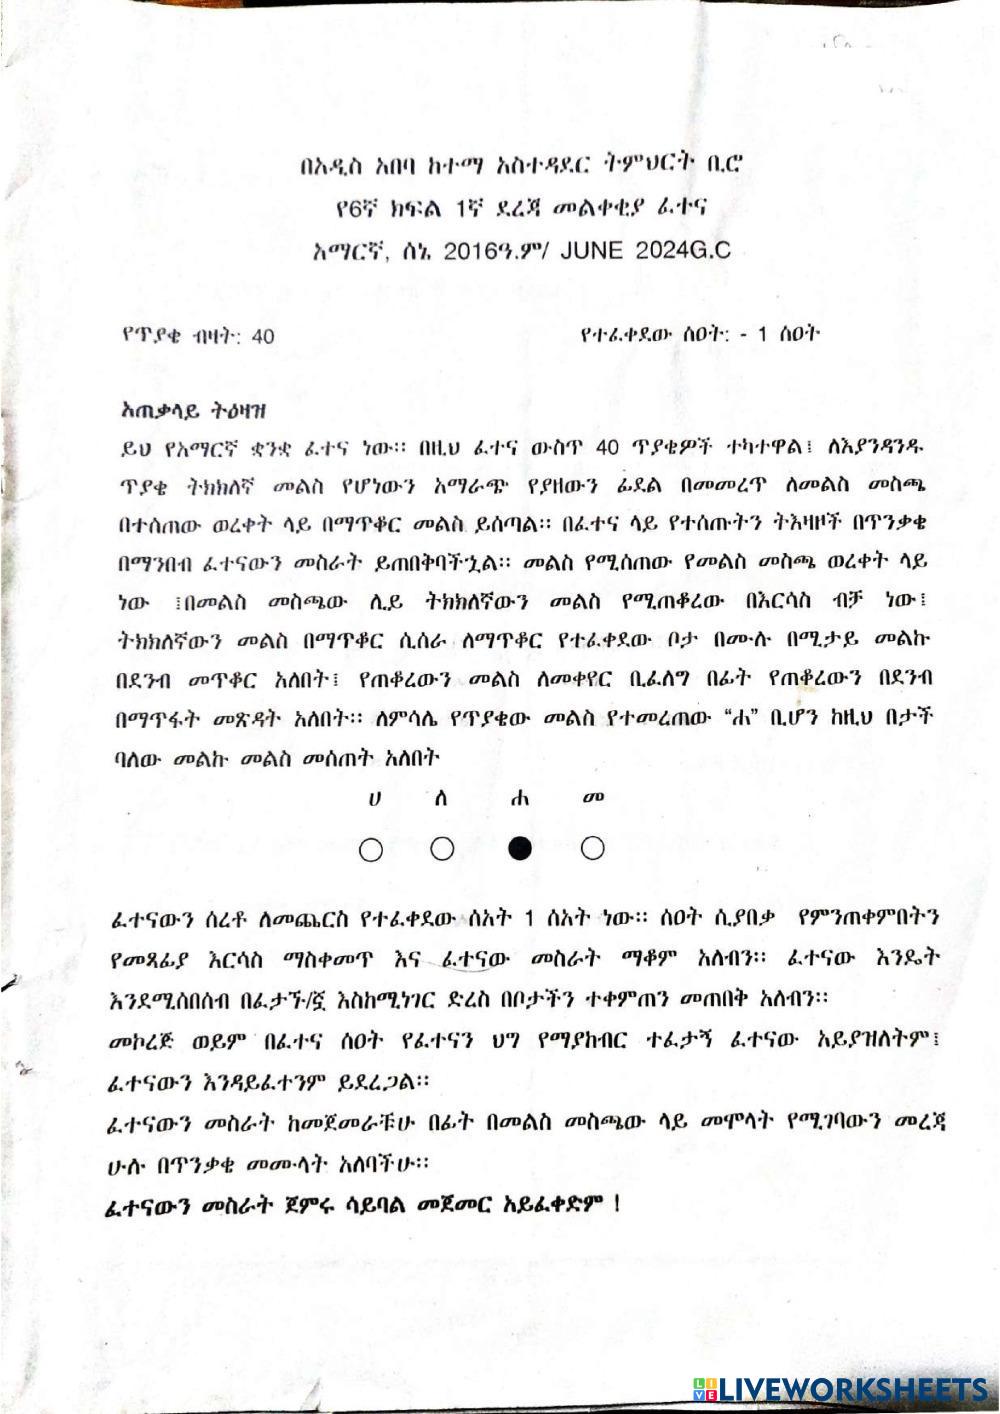 በአዲስ አበባ ከተማ አስተዳደር ትምህርት ቢሮ
የ6ኛ ክፍል 1ኛ ደረጃ መልቀቂያ ፈተና
አማርኛ, ሰኔ 2016ዓ.ም/ JUNE 2024G.C
የጥያቄ ብዛት: 40 የተፈቀደው ሰዐት: - 1 ሰዐት
አጠቃላይ ትዕዛዝ
ይህ የአማርኛ ቋንቋ ፈተና ነው፡፡ በዚህ ፈተና ውስጥ 40 ጥያቄዎች ተካተዋል፤ ለእያንዳንዱ
ጥያቄ ትክክለኛ መልስ የሆነውን አማራጭ የያዘውን ፊደል በመመረጥ ለመልስ መስጫ
በተሰጠው ወረቀት ላይ በማጥቆር መልስ ይሰጣል፡፡ በፈተና ላይ የተሰጡትን ትእዛዞች በጥንቃቄ
በማንበብ ፈተናውን መስራት ይጠበቅባችኋል፡፡ መልስ የሚሰጠው የመልስ መስጫ ወረቀት ላይ
ነው ፤በመልስ መስጫው ሊይ ትክክለኛውን መልስ የሚጠቆረው በእርሳስ ብቻ ነው፤
ትክክለኛውን መልስ በማጥቆር ሲሰራ ለማጥቆር የተፈቀደው ቦታ በሙሉ በሚታይ መልኩ
በደንብ መጥቆር አለበት፤ የጠቆረውን መልስ ለመቀየር ቢፈለግ በፊት የጠቆረውን በደንብ
በማጥፋት መጽዳት አለበት፡፡ ለምሳሌ የጥያቄው መልስ የተመረጠው “ሐ” ቢሆን ከዚህ በታች
ባለው መልኩ መልስ መሰጠት አለበት
ሀ ለ ሐ መ
ፈተናውን ሰረቶ ለመጨርስ የተፈቀደው ሰአት 1 ሰአት ነው፡፡ ሰዐት ሲያበቃ የምንጠቀምበትን
የመጻፊያ እርሳስ ማስቀመጥ እና ፈተናው መስራት ማቆም አለብን፡፡ ፈተናው እንዴት
እንደሚሰበሰብ በፈታኙ/ኟ እስከሚነገር ድረስ በቦታችን ተቀምጠን መጠበቅ አለብን፡፡
መኮረጅ ወይም በፈተና ሰዐት የፈተናን ህግ የማያከብር ተፈታኝ ፈተናው አይያዝለትም፤
ፈተናውን እንዳይፈተንም ይደረጋል፡፡
ፈተናውን መስራት ከመጀመራቹሁ በፊት በመልስ መስጫው ላይ መሞላት የሚገባውን መረጃ
ሁሉ በጥንቃቄ መሙላት አለባችሁ፡፡
ፈተናውን መስራት ጀምሩ ሳይባል መጀመር አይፈቀድም !
LIVEWORKSHEETS